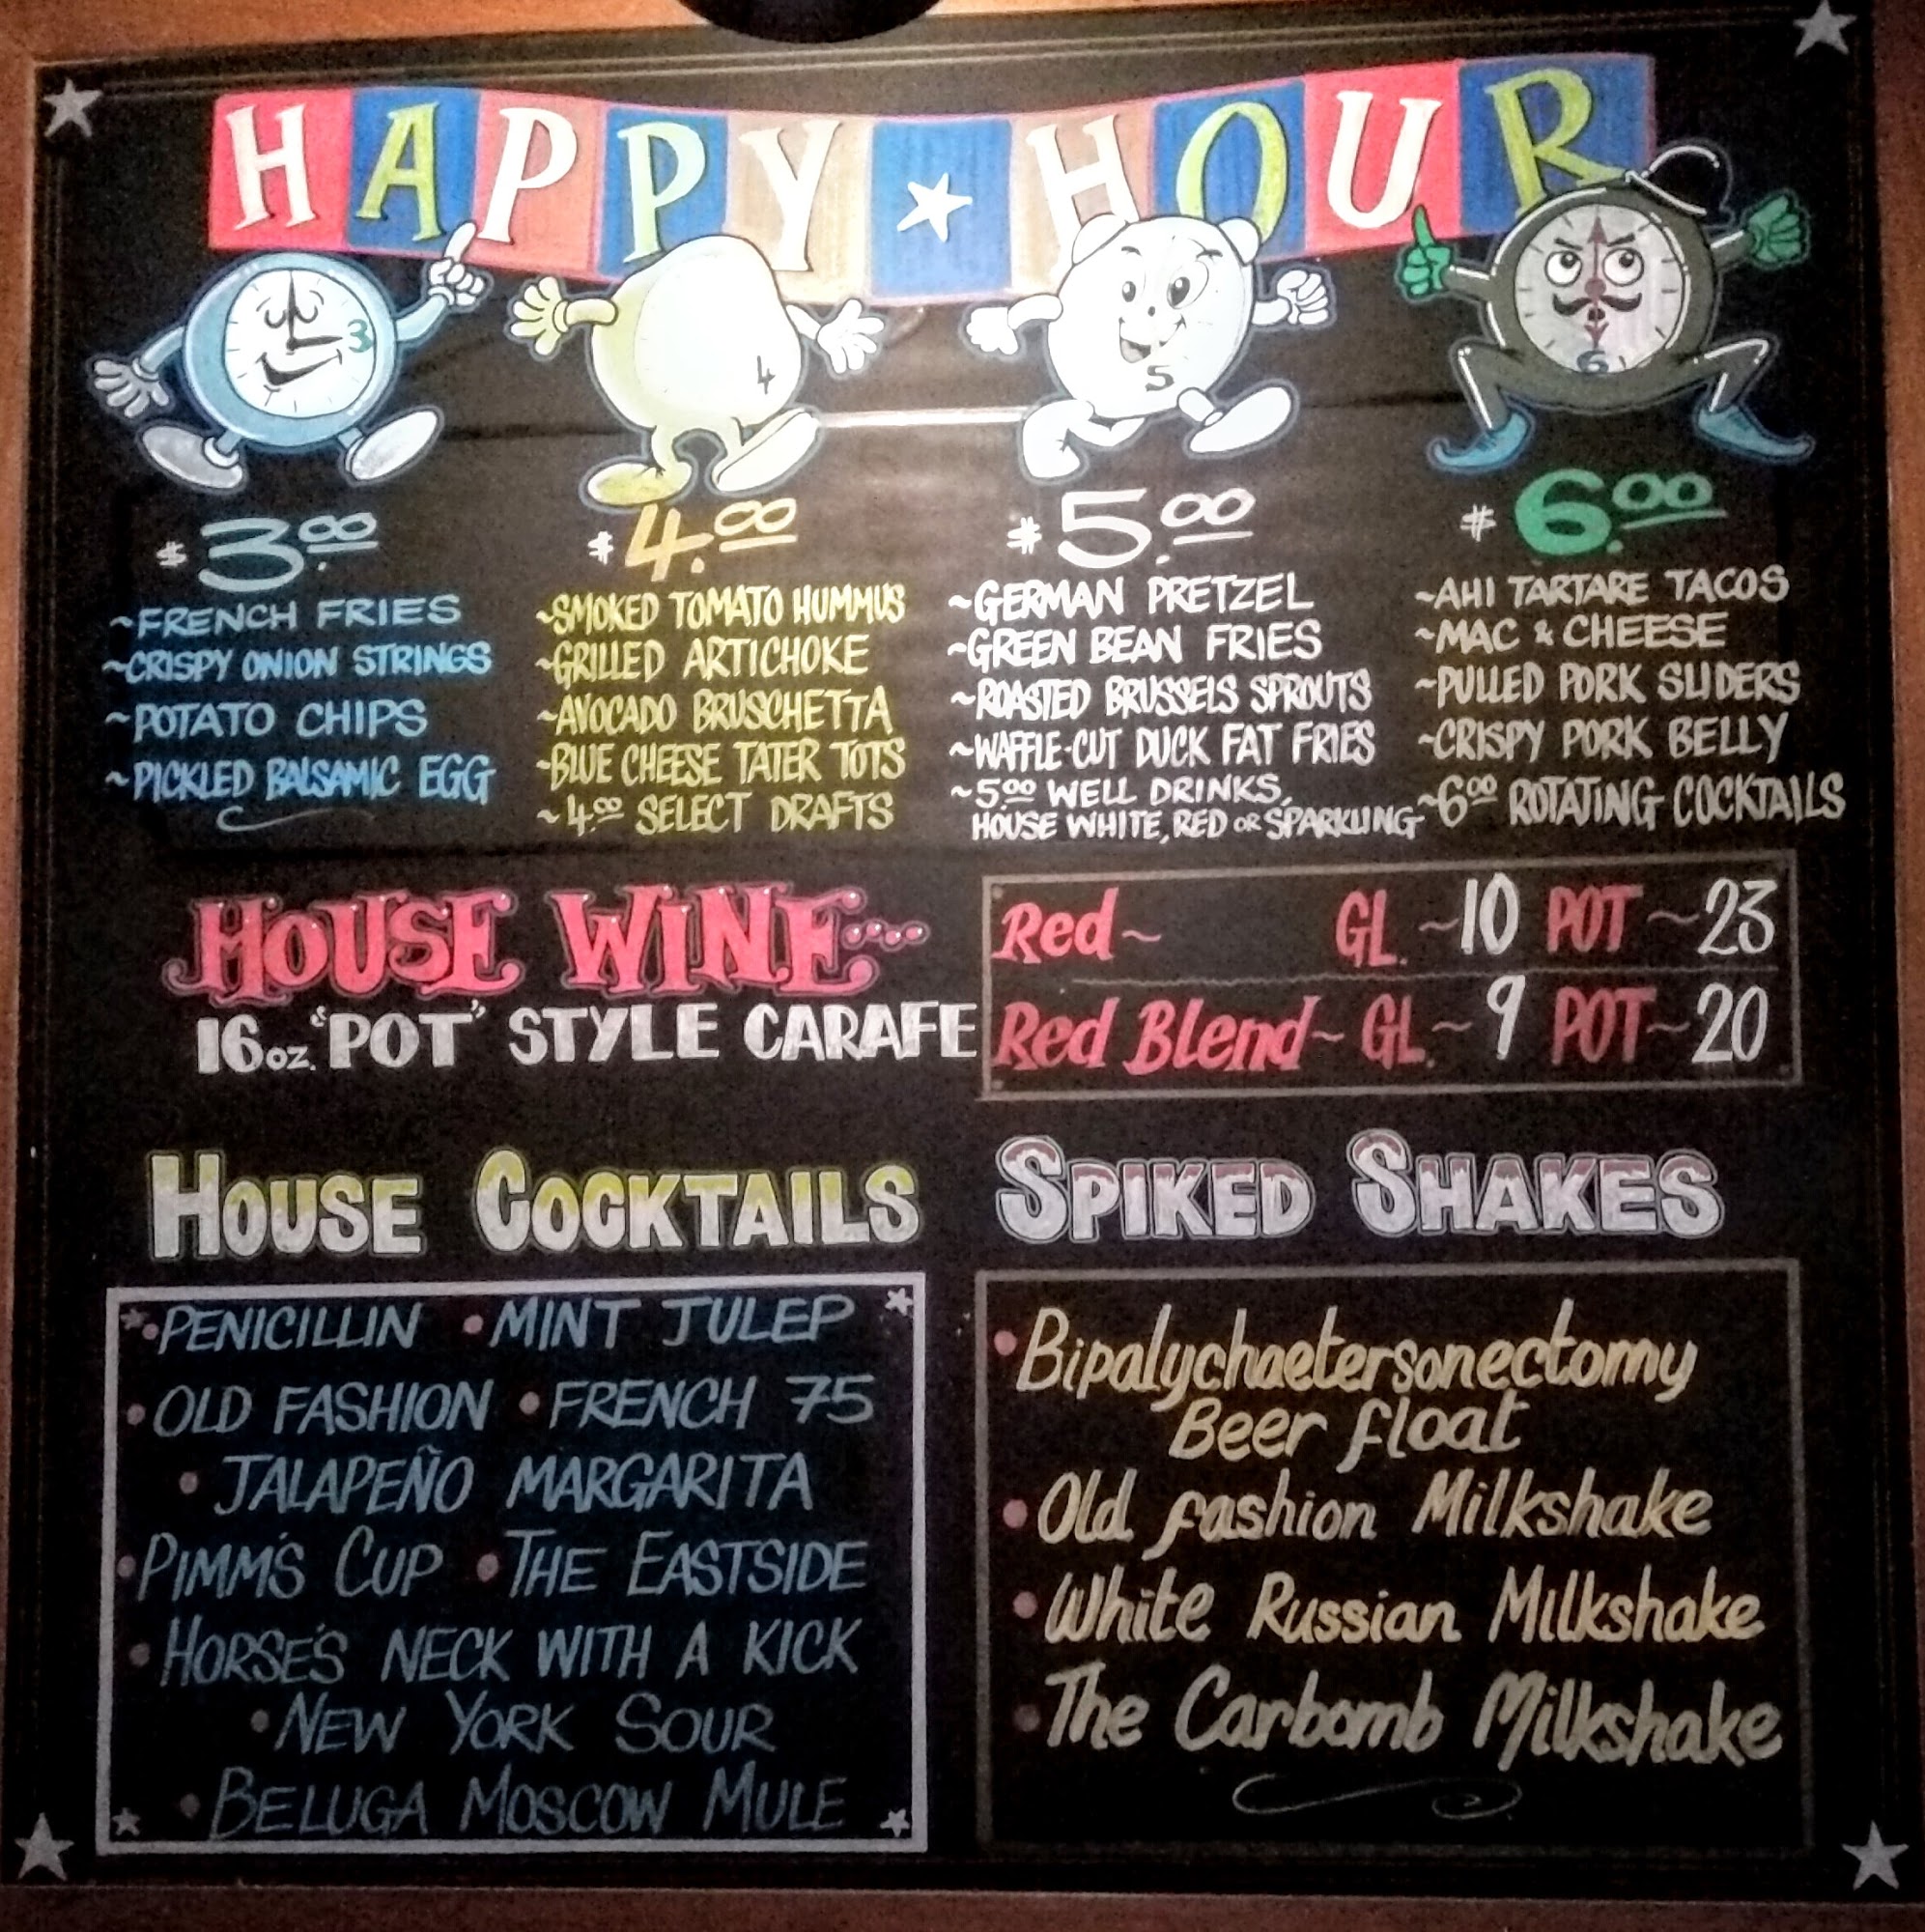 HAPPY★HOUR
3
4
5
6
$3.00
~FRENCH FRIES
~CRISPY ONION STRINGS
~POTATO CHIPS
~PICKLED BALSAMIC EGG
$4.00
~SMOKED TOMATO HUMMUS
~GRILLED ARTICHOKE
~AVOCADO BRUSCHETTA
~BLUE CHEESE TATER TOTS
~4.00 SELECT DRAFTS
$5.00
~GERMAN PRETZEL
~GREEN BEAN FRIES
~ROASTED BRUSSELS SPROUTS
~WAFFLE-CUT DUCK FAT FRIES
~5.00 WELL DRINKS,
HOUSE WHITE, RED OR SPARKLING
$6.00
~AHI TARTARE TACOS
~MAC & CHEESE
~PULLED PORK SLIDERS
~CRISPY PORK BELLY
~6.00 ROTATING COCKTAILS
HOUSE WINE...
16oz. "POT" STYLE CARAFE
Red~ GL.~10 POT~23
Red Blend~ GL.~9 POT~20
HOUSE COCKTAILS
•PENICILLIN •MINT JULEP
•OLD FASHION •FRENCH 75
•JALAPEÑO MARGARITA
•PIMM'S CUP •THE EASTSIDE
•HORSE'S NECK WITH A KICK
•NEW YORK SOUR
•BELUGA MOSCOW MULE
SPIKED SHAKES
•Bipalychaetersonectomy
Beer float
•Old fashion Milkshake
•White Russian Milkshake
•The Carbomb Milkshake